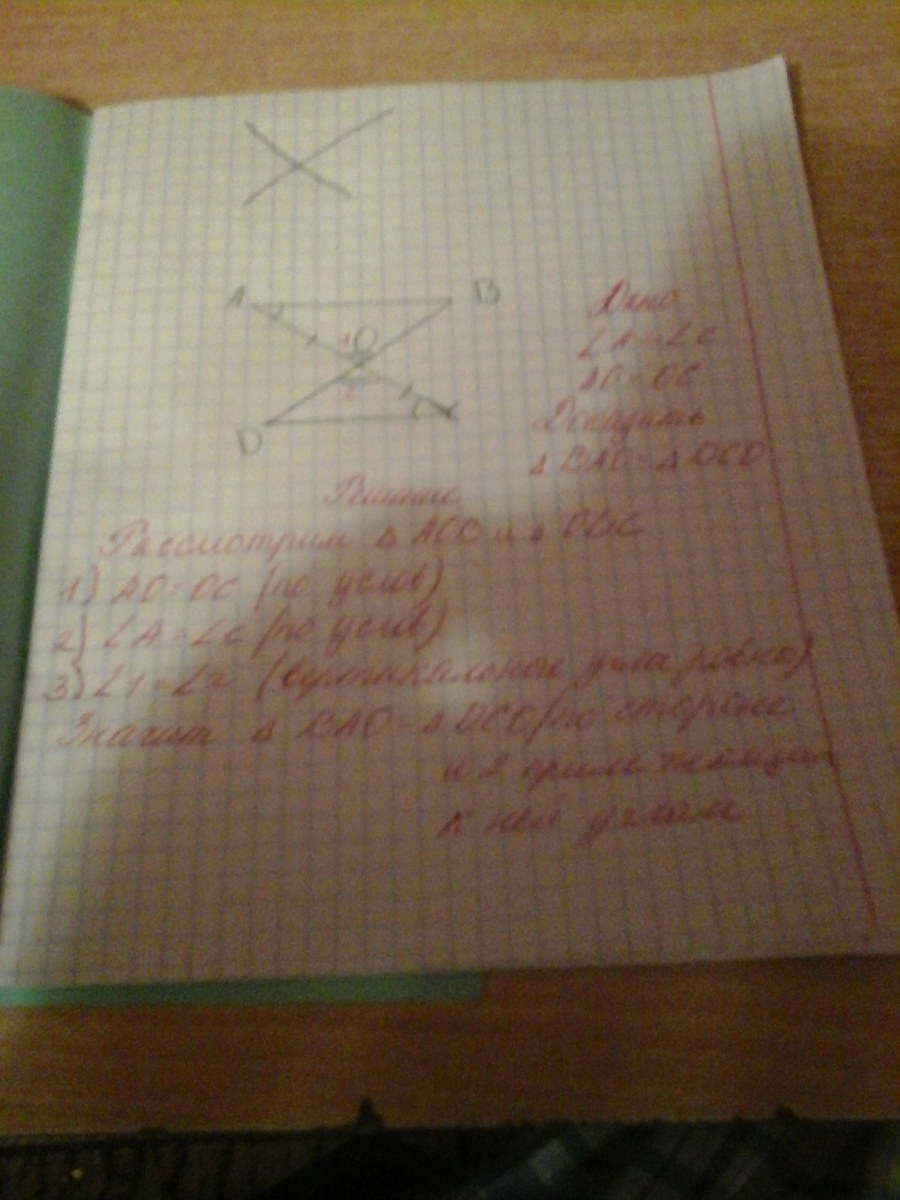 A B
O
1
2
D
Дано
∠A=∠C
AO=OC
Доказать
△BAO=△DCO
Решение
Рассмотрим △AOB и △ODC
1) AO=OC (по услов)
2) ∠A=∠C (по услов)
3) ∠1=∠2 (вертикальные углы равны)
Значит △BAO=△DCO (по стороне
и 2 прилежащим
к ней углам